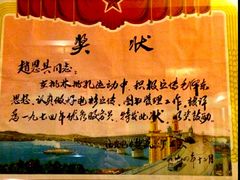 奖状
赵恩具同志：
在批林批孔运动中，积极宣传毛泽东
思想，认真做好电影宣传、图书管理工作，被评
为一九七四年优秀服务员，特发此状，以资鼓励。
十二月